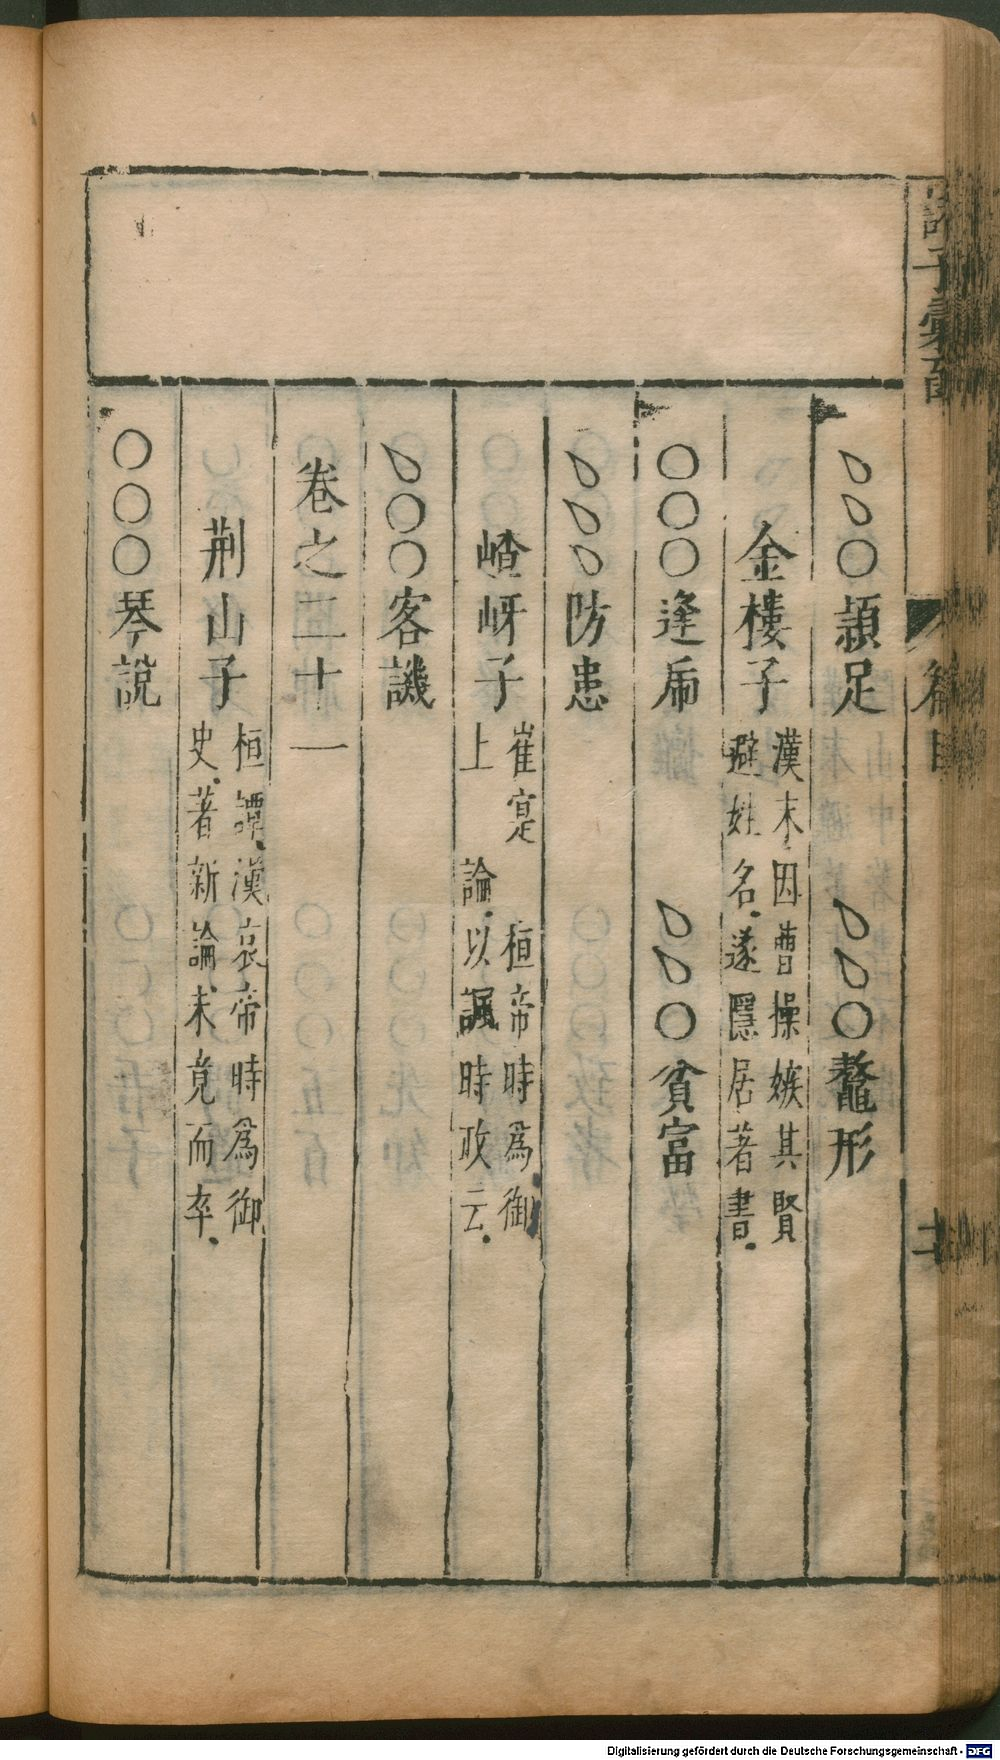 諸子彙函
篇目
、、○頴足　、、○鼇形
金樓子漢末因曹操嫉其賢
避姓名遂隱居著書
○○○逢廍　、、○貧富
、、、防患
嵖岈子崔寔　桓帝時爲御
上　論以諷時政云
、○○客譏
卷之二十一
荆山子桓譚漢哀帝時爲御
史著新論未竟而卒
○○○琴說
Digitalisierung gefördert durch die Deutsche Forschungsgemeinschaft - DFG